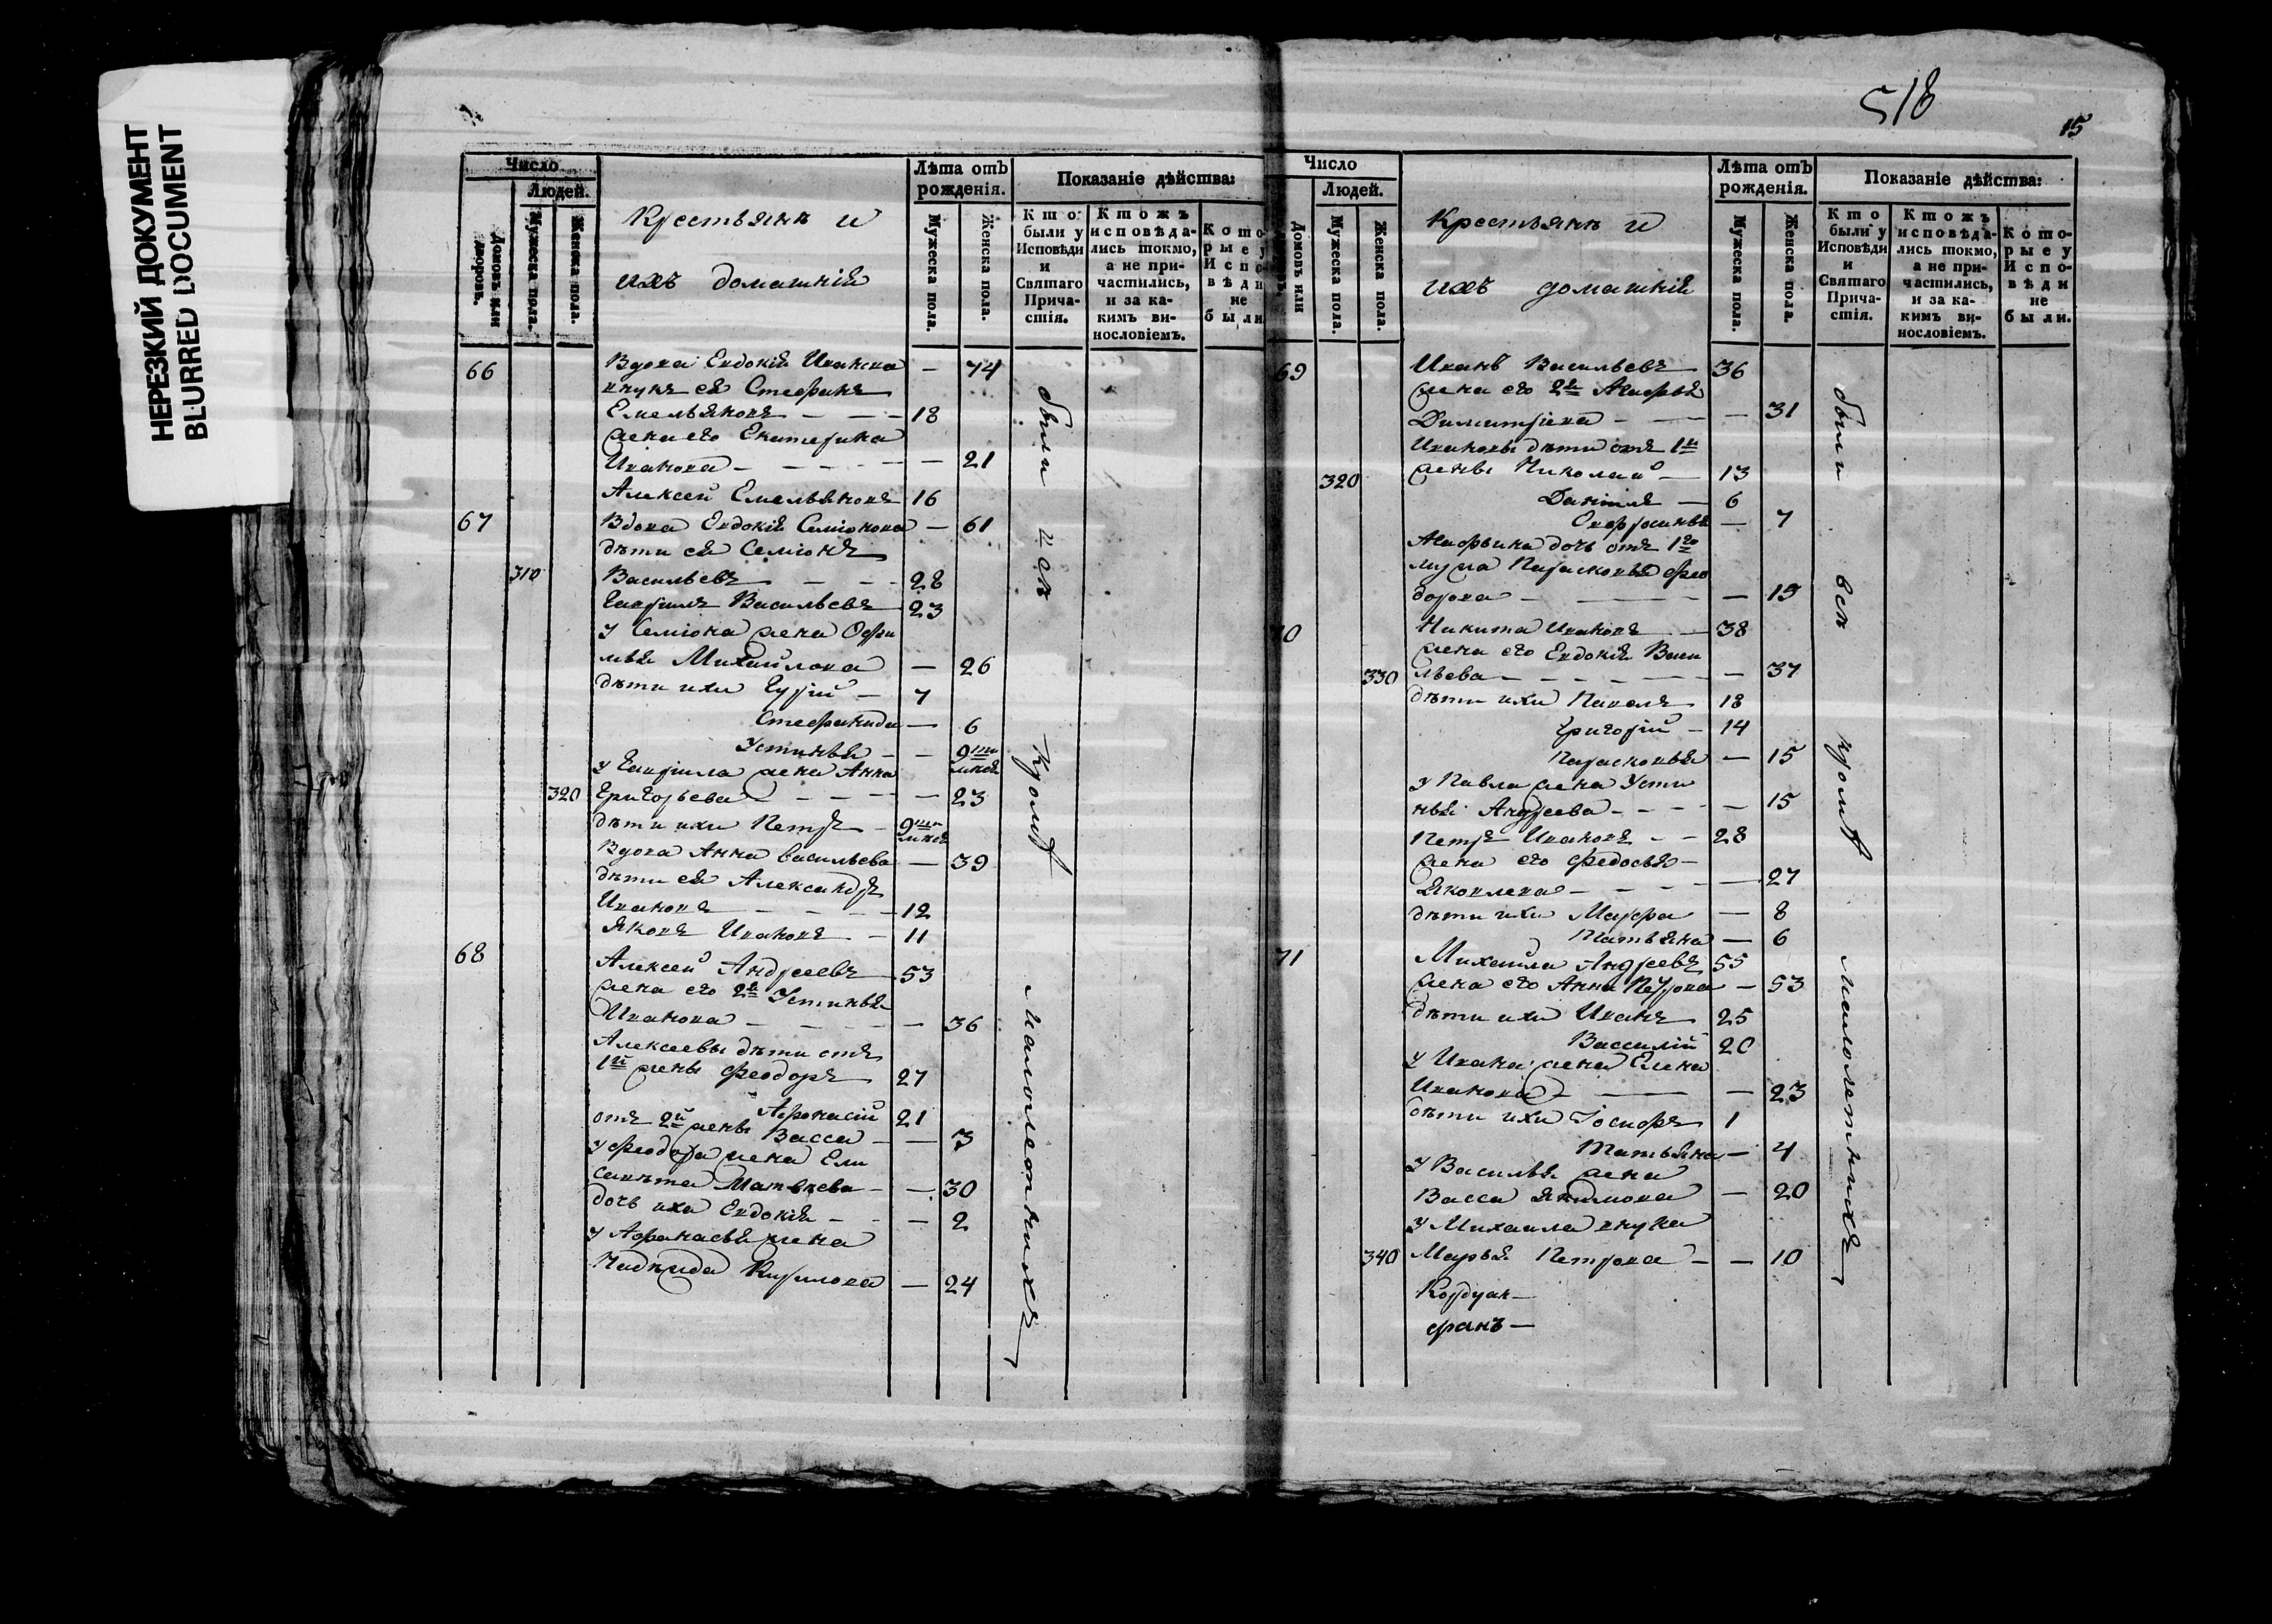 НЕРЕЗКИЙ ДОКУМЕНТ
BLURRED DOCUMENT
518
15
Число
Людей.
Домовъ или дворовъ.
Мужеска пола.
Женска пола.
Крестьянъ и
ихъ домашнія
Лѣта отъ рожденія.
Мужеска пола.
Женска пола.
Показаніе дѣйства:
Кто были у Исповѣди и Святаго Причастія.
Ктожъ исповѣдались токмо, а не причастились, и за какимъ винословіемъ.
Которые у Исповѣди не были.
66 Вдова Евдокія Иванова — 74
внукъ ея Стефанъ
Емельяновъ — — — 18
жена его Екатерина
Иванова — — — — — 21
Алексей Емельяновъ 16
67 Вдова Евдокія Семіонова — 61
дѣти ея Семіонъ
310 Васильевъ — — — 28
Гаврилъ Васильевъ 23
у Семіона жена Офи
мья Михайлова — 26
дѣти ихъ Гурій — 7
Стефанида — 6
Устинья — — 9ти мѣся
у Гаврила жена Анна
320 Григорьева — — — — — 23
дѣти ихъ Петръ — 9ти мѣся
Вдова Анна Васильева — 39
дѣти ея Александръ
Ивановъ — — — — 12
Яковъ Ивановъ — 11
68 Алексей Андреевъ 53
жена его 2я Устинья
Иванова — — — — — 36
Алексеевы дѣти отъ
1й жены Феодоръ 27
Афонасій 21
отъ 2й жены Васса — — 3
у Феодора жена Ели
савѣта Матвѣева — — 30
дочь ихъ Евдокія — — — 2
у Афанасья жена
Надѣжда Кирилова — 24
были всѣ кромѣ малолетнихъ
Число
Людей.
Домовъ или
Мужеска пола.
Женска пола.
Крестьянъ и
ихъ домашнія
Лѣта отъ рожденія.
Мужеска пола.
Женска пола.
Показаніе дѣйства:
Кто были у Исповѣди и Святаго Причастія.
Ктожъ исповѣдались токмо, а не причастились, и за какимъ винословіемъ.
Которые у Исповѣди не были.
69 Иванъ Васильевъ 36
жена его 2я Агафья
Димитріева — — — 31
Ивановы дѣти отъ 1й
320 жены Николай — 13
Даніилъ — 6
Евфросинья — 7
Агафьина дочь отъ 1го
мужа Парасковья Фео
дорова — — — — 15
70 Никита Ивановъ — 38
жена его Евдокія Васи
330 льева — — — — — — 37
дѣти ихъ Павелъ 18
Григорій — 14
Парасковья — 15
у Павла жена Усти
нья Андреева — — — — 15
Петръ Ивановъ — — 28
жена его Федосья —
Яковлева — — — — 27
дѣти ихъ Марфа — 8
Татьяна — 6
71 Михайла Андреевъ 55
жена его Анна Петрова — 53
дѣти ихъ Иванъ 25
Вассилій 20
у Ивана жена Елена
Иванова — — — 23
дѣти ихъ Іосифъ 1
Татьяна — 4
у Василья жена
Васса Якимова — 20
у Михаила внука
340 Марья Петрова — — 10
были всѣ кромѣ малолетнихъ